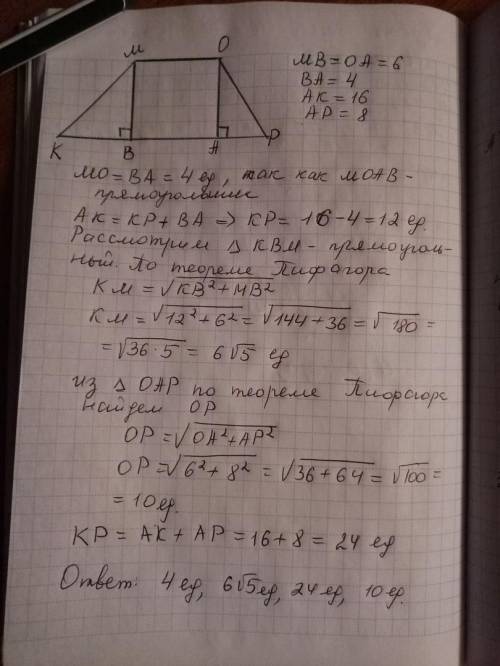 M O
K B A P
MB = OA = 6
BA = 4
AK = 16
AP = 8
MO = BA = 4 ед, так как MOAB -
прямоугольник
AK = KP + BA => KP = 16 - 4 = 12 ед.
Рассмотрим △ KBM - прямоуголь-
ный. По теореме Пифагора
KM = √(KB² + MB²)
KM = √(12² + 6²) = √(144 + 36) = √180 =
= √(36 · 5) = 6√5 ед
из △ OAP по теореме Пифагора
найдем OP
OP = √(OA² + AP²)
OP = √(6² + 8²) = √(36 + 64) = √100 =
= 10 ед.
KP = AK + AP = 16 + 8 = 24 ед
Ответ: 4 ед, 6√5 ед, 24 ед, 10 ед.